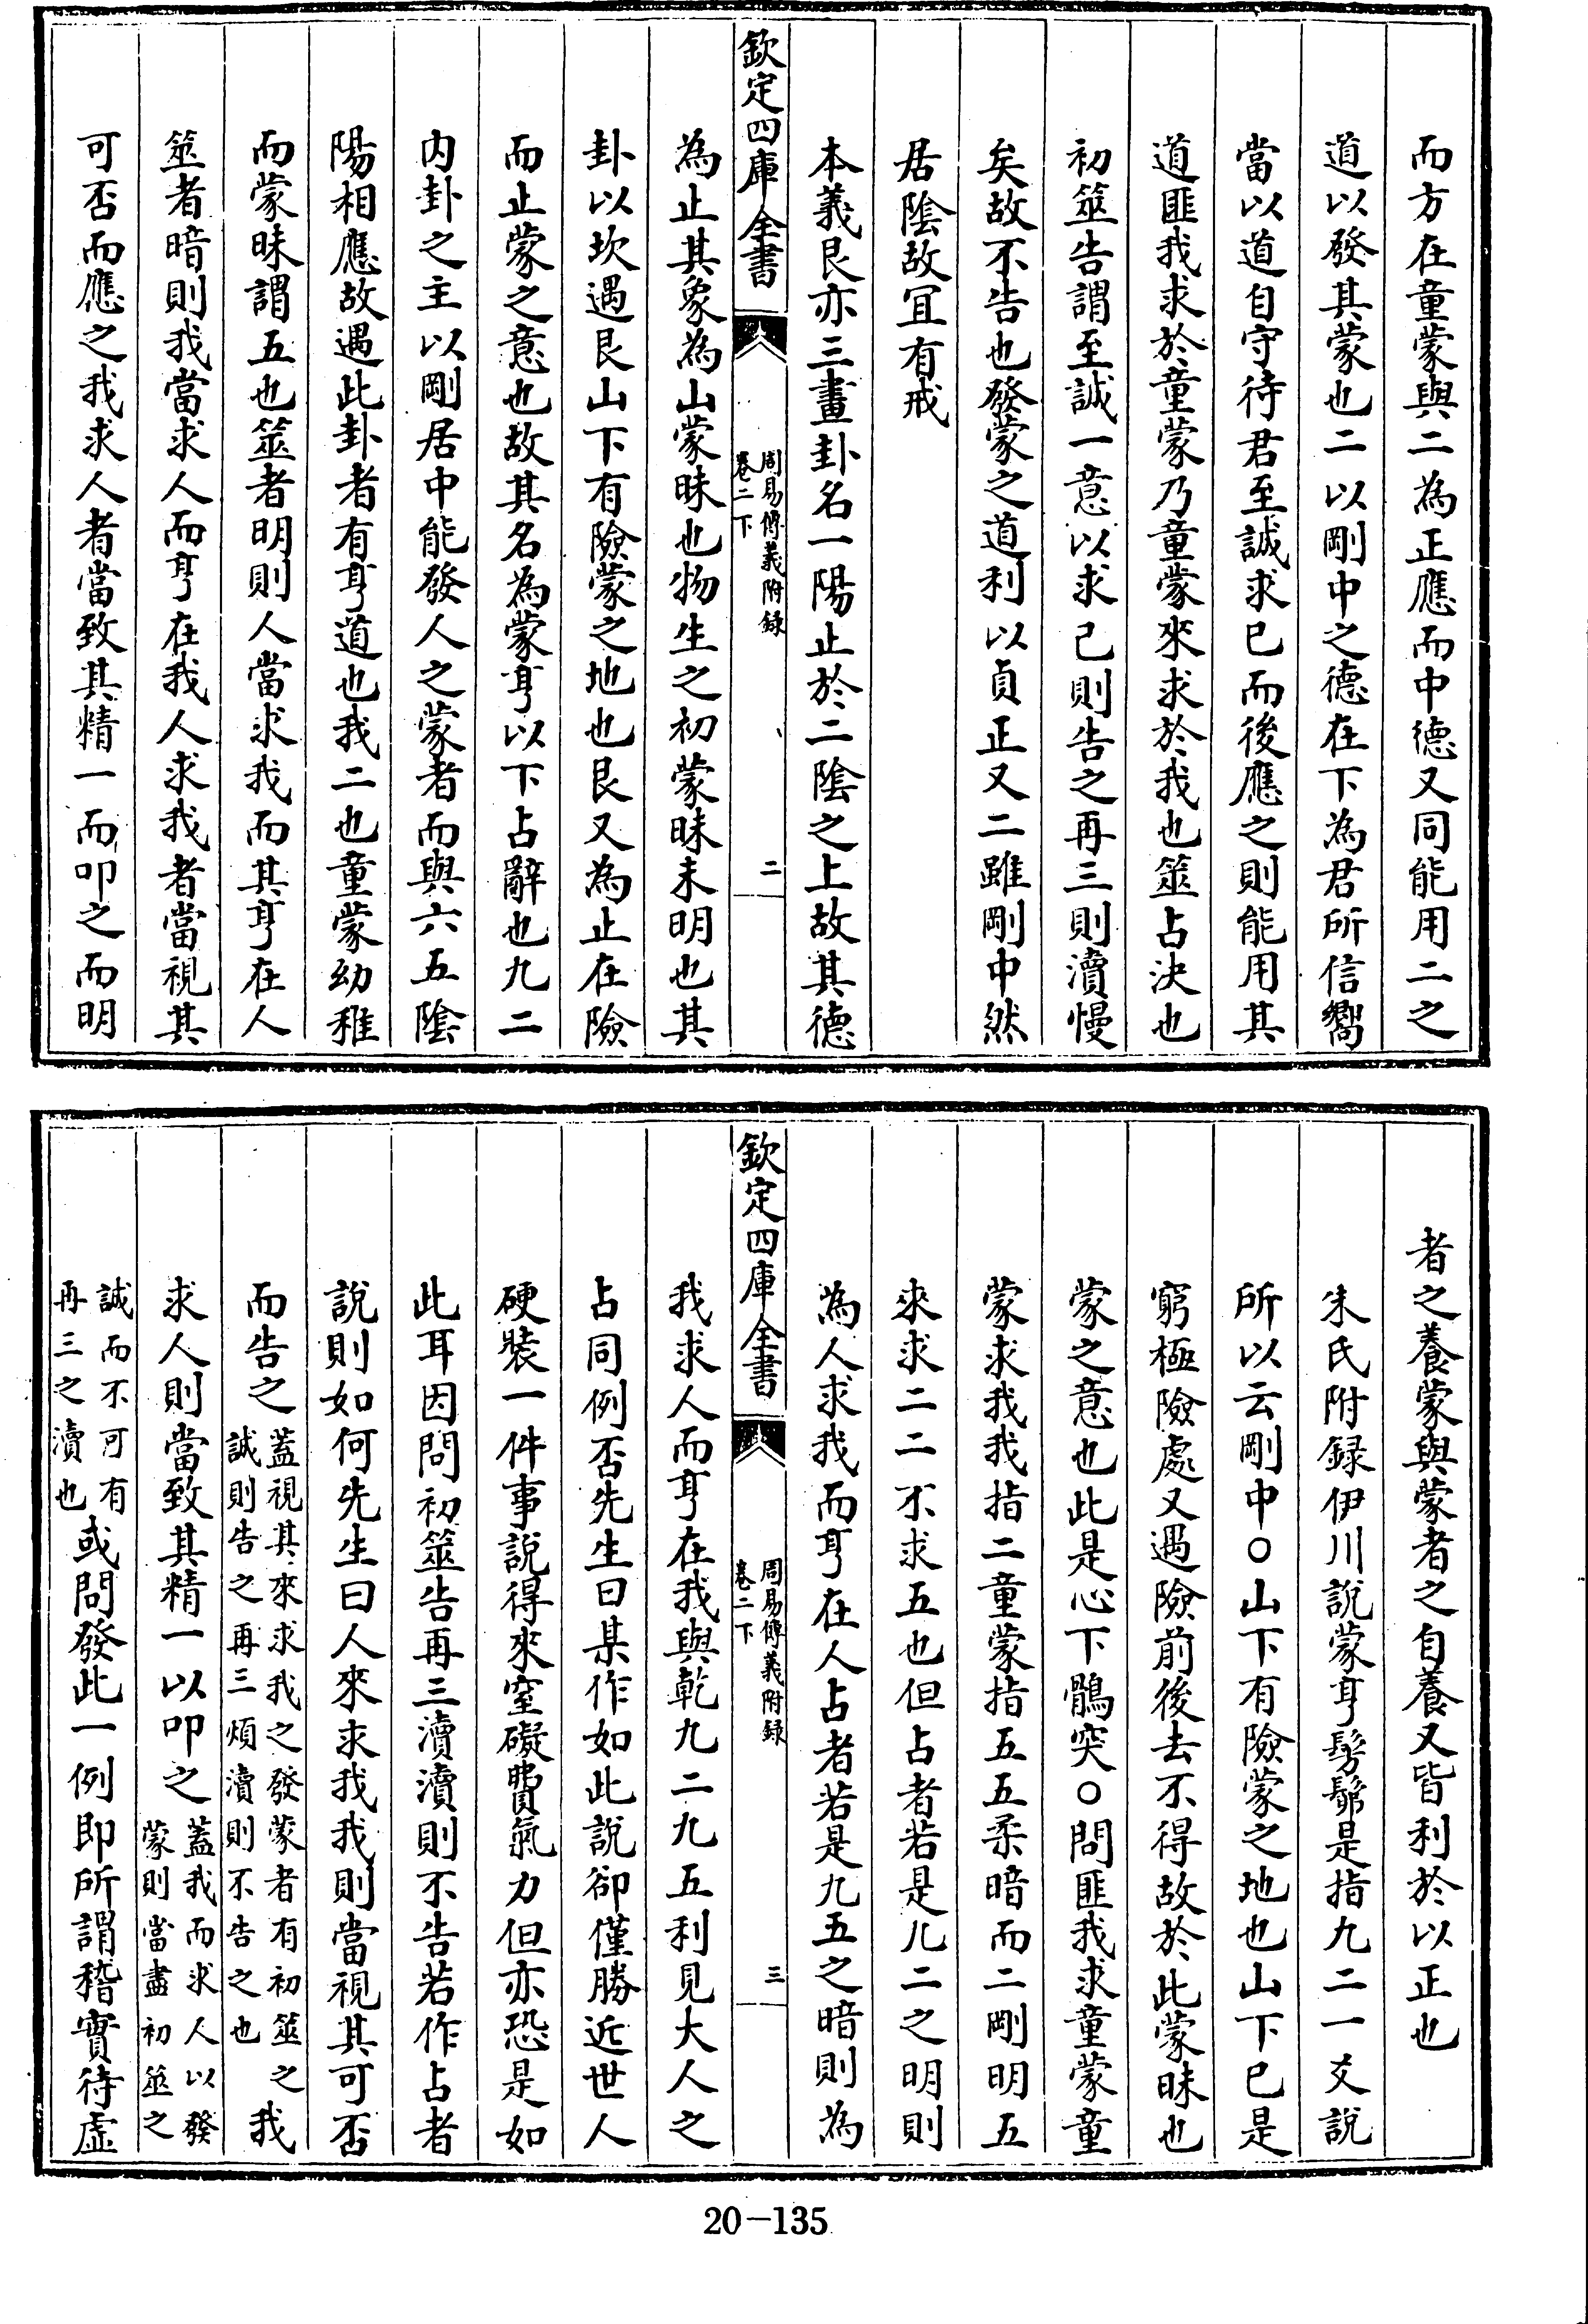 而方在童蒙與二為正應而中德又同能用二之
道以發其蒙也二以剛中之德在下為君所信嚮
當以道自守待君至誠求已而後應之則能用其
道匪我求於童蒙乃童蒙來求於我也筮占決也
初筮告謂至誠一意以求己則告之再三則瀆慢
矣故不告也發蒙之道利以貞正又二雖剛中然
居陰故宜有戒
本義艮亦三畫卦名一陽止於二陰之上故其德
欽定四庫全書
周易傳義附録
卷二下
二
為止其象為山蒙昧也物生之初蒙昧未明也其
卦以坎遇艮山下有險蒙之地也艮又為止在險
而止蒙之意也故其名為蒙亨以下占辭也九二
内卦之主以剛居中能發人之蒙者而與六五陰
陽相應故遇此卦者有亨道也我二也童蒙幼稚
而蒙昧謂五也筮者明則人當求我而其亨在人
筮者暗則我當求人而亨在我人求我者當視其
可否而應之我求人者當致其精一而叩之而明
者之養蒙與蒙者之自養又皆利於以正也
朱氏附録伊川說蒙亨髣髴是指九二一爻說
所以云剛中○山下有險蒙之地也山下已是
窮極險處又遇險前後去不得故於此蒙昧也
蒙之意也此是心下鶻突○問匪我求童蒙童
蒙求我我指二童蒙指五五柔暗而二剛明五
來求二二不求五也但占者若是九二之明則
為人求我而亨在人占者若是九五之暗則為
欽定四庫全書
周易傳義附録
卷二下
三
我求人而亨在我與乾九二九五利見大人之
占同例否先生曰某作如此說卻僅勝近世人
硬裝一件事說得來窒礙費氣力但亦恐是如
此耳因問初筮告再三瀆瀆則不告若作占者
說則如何先生曰人來求我我則當視其可否
而告之蓋視其來求我之發蒙者有初筮之誠則告之再三煩瀆則不告之也我
求人則當致其精一以叩之蓋我而求人以發蒙則當盡初筮之
誠而不可有再三之瀆也或問發此一例即所謂稽實待虛
20-135